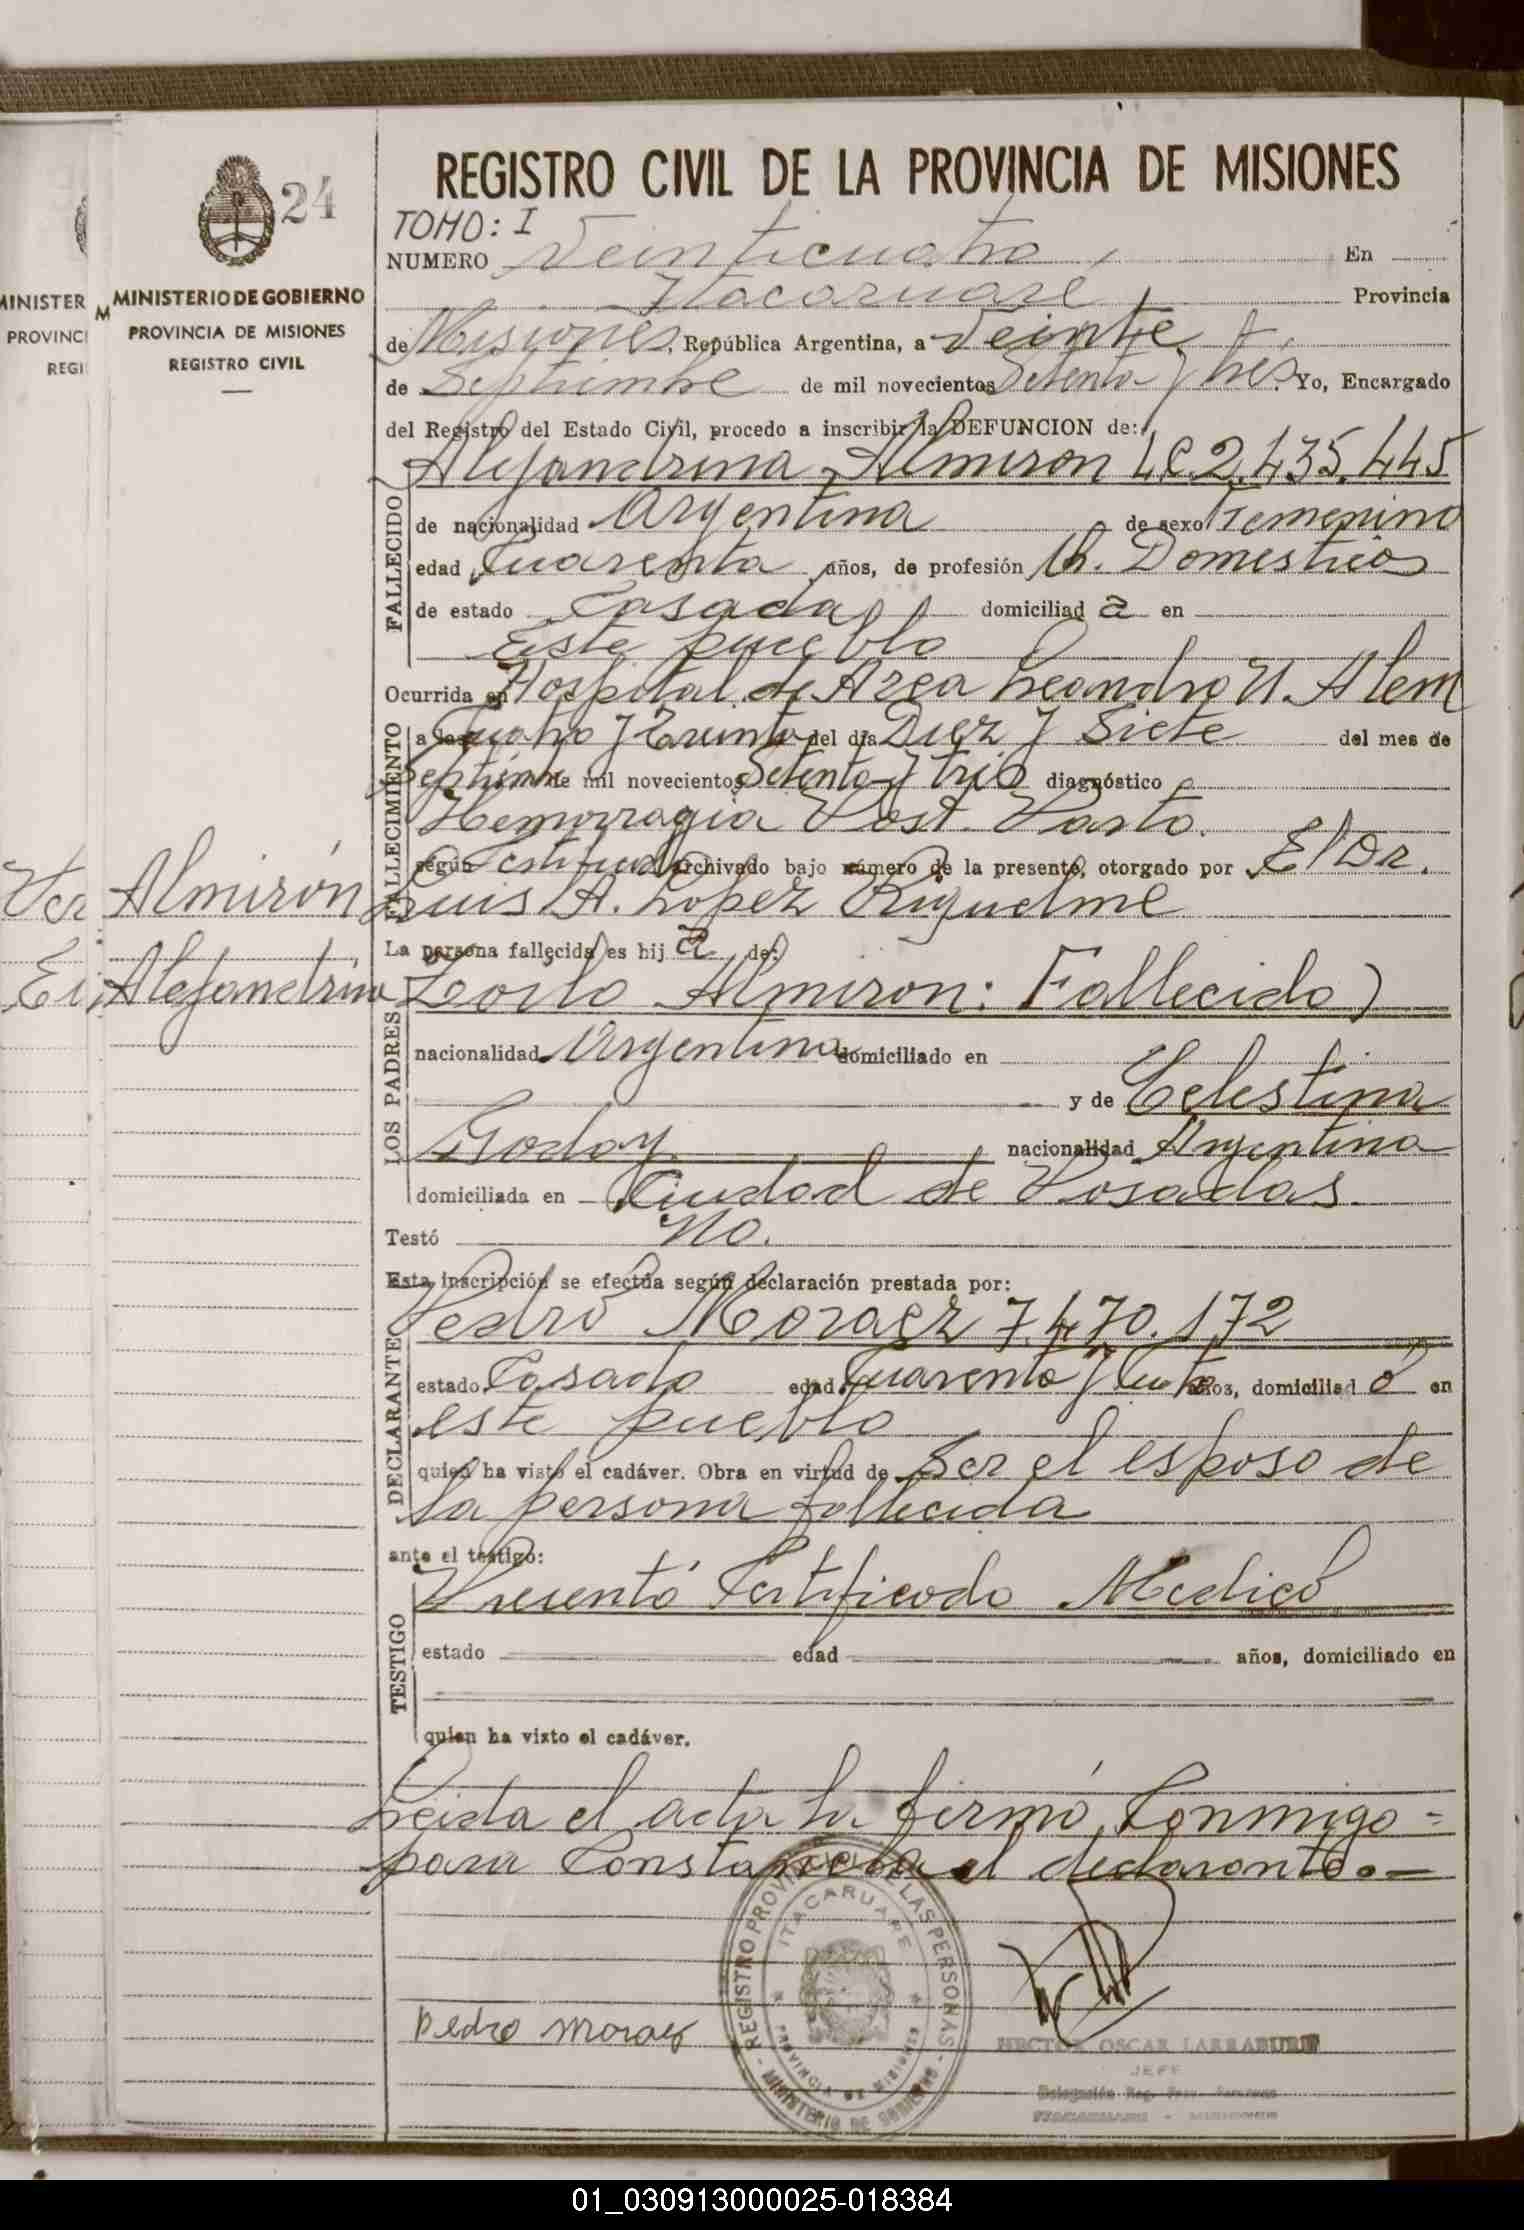 REGISTRO CIVIL DE LA PROVINCIA DE MISIONES
24
TOMO: I
NUMERO Veinticuatro En
Itacaruaré, Provincia
de Misiones, República Argentina, a Veinte
de Septiembre de mil novecientos Setenta y tres. Yo, Encargado
del Registro del Estado Civil, procedo a inscribir la DEFUNCION de:
Alejandrina Almiron L.C. 2.435.445
FALLECIDO
de nacionalidad Argentina de sexo Femenino
edad Cuarenta años, de profesión Domesticos
de estado Casada domiciliad a en
Este pueblo
Ocurrida en Hospital de Area Leandro N. Alem
FALLECIMIENTO
a las Cuatro y Treinta del dia Diez y Siete del mes de
Septiembre de mil novecientos Setenta y tres diagnóstico
Hemorragia Post. Parto.
según Certificado archivado bajo número de la presente, otorgado por El Dr.
Luis A. Lopez Riquelme
La persona fallecida es hij a de:
LOS PADRES
Zoilo Almiron: Fallecido)
nacionalidad Argentina domiciliado en
y de Celestina
Godoy nacionalidad Argentina
domiciliada en Ciudad de Posadas.
Testó No.
Esta inscripción se efectúa según declaración prestada por:
DECLARANTE
Pedro Moraez 7.470.172
estado Casado edad Cuarenta y años, domiciliad o en
este pueblo
quien ha visto el cadáver. Obra en virtud de Ser el esposo de
la persona fallecida
ante el testigo:
TESTIGO
Presentó Certificado Medico
estado edad años, domiciliado en
quien ha visto el cadáver.
Leida el acta la firmó, Conmigo =
para Constancia el declarante. =
REGISTRO PROVINCIAL DE LAS PERSONAS
ITACARUARE
PROVINCIA DE MISIONES
MINISTERIO DE GOBIERNO
Pedro Moraez
HECTOR OSCAR LARRABURE
JEFE
Delegación Reg. Prov. Personas
MINISTERIO DE GOBIERNO
PROVINCIA DE MISIONES
REGISTRO CIVIL
Almirón
Alejandrina
MINISTER
PROVINCI
REGI
M
01_030913000025-018384